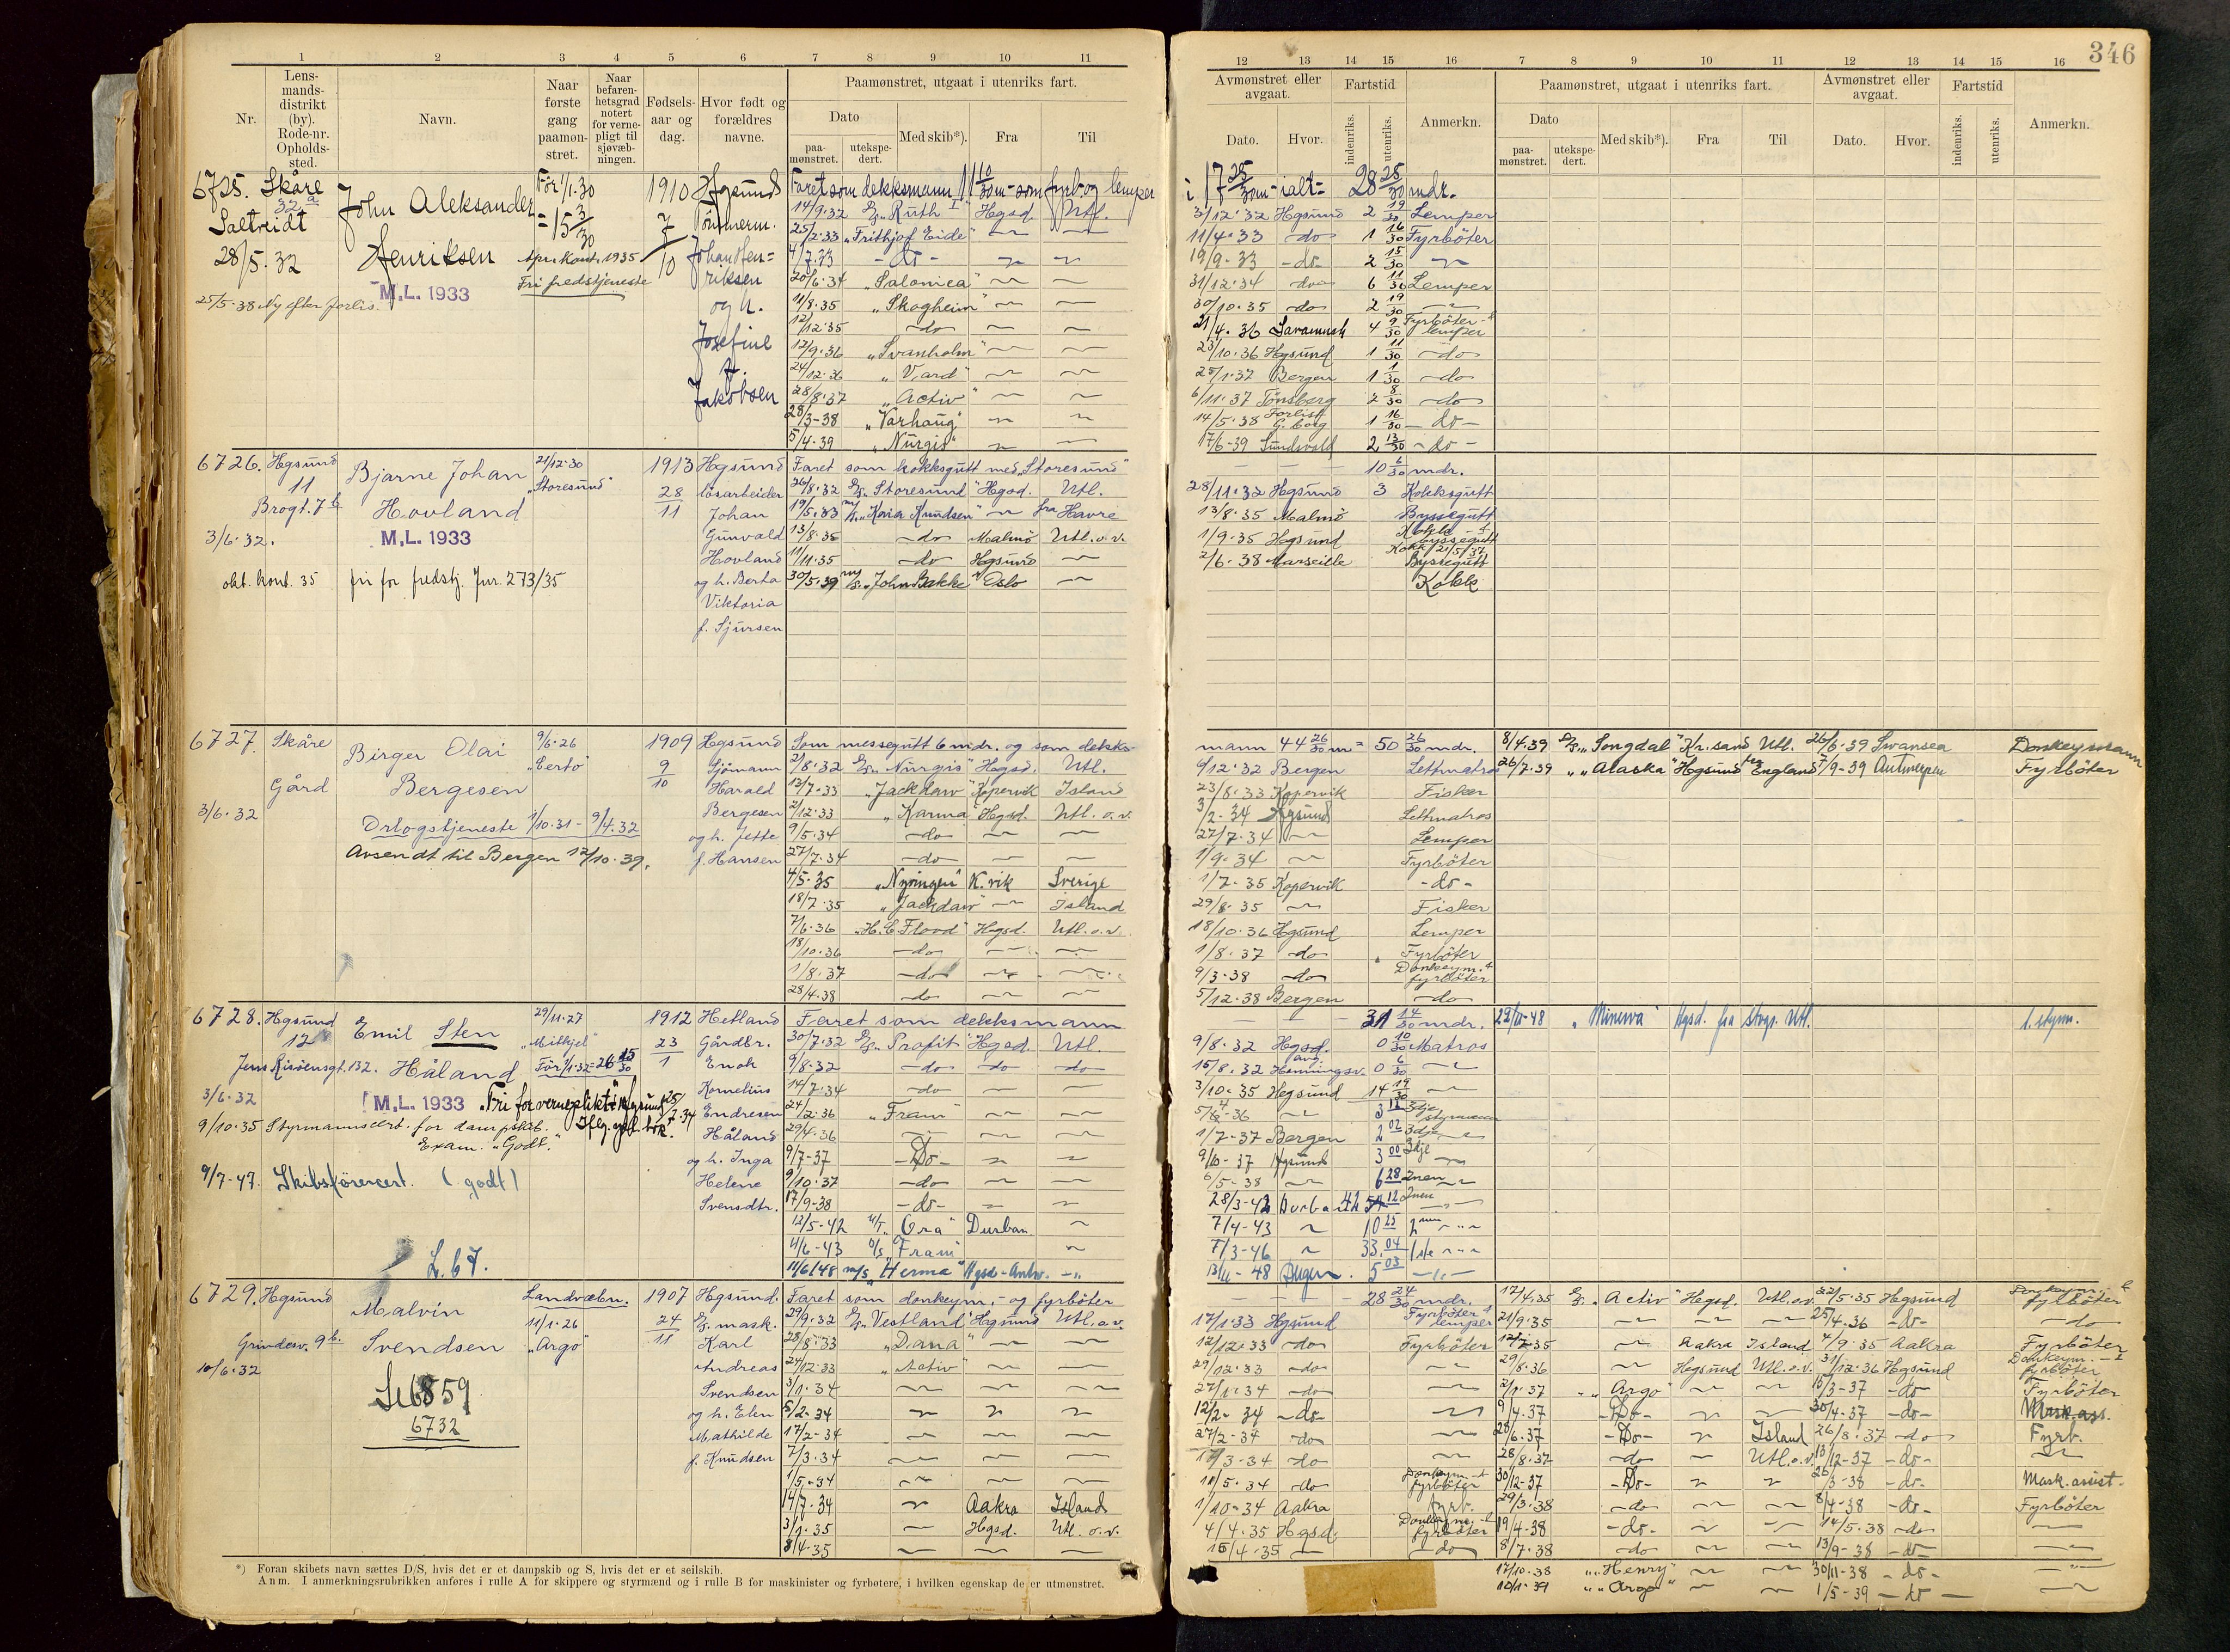 346
1 2 3 4 5 6 7 8 9 10 11
Nr. Lens-mands-distrikt (by). Rode-nr. Opholds-sted. Navn. Naar første gang paamøn-stret. Naar befaren-hetsgrad notert for verne-pligt til sjøvæb-ningen. Fødsels-aar og dag. Hvor født og forældres navne. Paamønstret, utgaat i utenriks fart.
Dato Med skib*). Fra Til
paa-mønstret. utekspe-dert.
12 13 14 15 16 7 8 9 10 11 12 13 14 15 16
Avmønstret eller avgaat. Fartstid Anmerkn. Paamønstret, utgaat i utenriks fart. Avmønstret eller avgaat. Fartstid Anmerkn.
Dato. Hvor. indenriks. utenriks. Dato Med skib*). Fra Til Dato. Hvor. indenriks. utenriks.
paa-mønstret. utekspe-dert.
6725. Skåre
32 a
Saltveidt
28/5. 32
25/5.38 Ny efter forlis.
John Aleksander
Henriksen
M.L. 1933
Før 1/1.30
= 15 3/30
1935
Fri fredstjeneste
1910
7/10
Hgsund
Tömmerm.
Johan Hen=
riksen
og h.
Josefine
f.
Jakobsen
Faret som dekksmann 11 10/30 m - som fyrb og lemper
14/9.32 D/S "Ruth I" Hgsd. Utl.
25/2.33 "Frithjof Eide"
4/7.33 - do -
20/6.34 "Salonica"
11/8.35 "Skogheim"
12/12.35 do
12/9.36 "Svanholm"
24/12.36 "Vard"
28/8.37 "Activ"
28/3-38 "Varhaug"
5/4.39 "Nurgis"
i 17 25/30 m - ialt = 28 25/30 mdr.
3/12.32 Hgsund 2 19/30 Lemper
11/4.33 do 1 16/30 Fyrböter
19/9.33 -do- 2 15/30
31/12.34 do 6 11/30 Lemper
30/10.35 do 2 19/30
21/4.36 Savannah 4 9/30 Fyrböter - & lemper
23/10.36 Hgsund 1 11/30 do
25/1.37 Bergen 1 1/30 do
6/11.37 Tönsberg 2 8/30 do
14/5.38 Forlist 1 16/30 - do -
17/6-39 Sundsvald 2 13/30 - do -
6726. Hgsund
11
Brogt. 7 b
3/6.32.
okt. kont. 35 fri for fredstj. Jnr. 273/35
Bjarne Johan
Hovland
M.L. 1933
21/12.30
"Storesund"
1913
28/11
Hgsund
lösarbeider
Johan
Gunvald
Hovland
og h. Berta
Viktoria
f. Sjursen
Faret som kokksgutt med "Storesund"
26/8.32 D/S "Storesund" Hgsd. Utl.
19/5.33 m/s "Karia Knudsen" fra Havre
13/8.35 do Malmö Utl.o.v.
11/11.35 do Hgsund
30/5.39 m/s "John Bakke" Oslo
10 6/30 mdr.
28/11.32 Hgsund 3 Kokksgutt
13/8.35 Malmö Byssegutt
1/9.35 Hgsund Kokk - & byssegutt
Kokk/21/5/37
2/6.38 Marseille Byssegutt
Kokk
6727. Skåre
Gård
3/6.32
Birger Olai
Bergesen
Orlogstjeneste 1/10.31 - 9/4.32
Avsendt til Bergen 12/10.39.
9/6.26
"Certo"
1909
9/10
Hgsund
Sjömann
Harald
Bergesen
og h. Jette
f. Hansen
Som messegutt 6 mdr. og som dekks-
2/8.32 D/S "Nurgis" Hgsd. Utl.
12/7.33 "Jackdaw" Kopervik Island
2/12.33 "Karma" Hgsd. Utl.o.v.
9/5.34 do
27/7.34 do
4/5.35 "Nyringen" K.vik Sverige
18/7.35 "Jackdaw" Island
7/6.36 "H.C Flood" Hgsd. Utl.o.v.
18/10.36 do
1/8.37 do
28/4.38 do
mann 44 26/30 m = 50 26/30 mdr.
9/12.32 Bergen Lettmatros
23/8.33 Kopervik Fisker
3/2.34 Hgsund Lettmatros
27/7.34 Lemper
1/9.34 Fyrböter
1/7.35 Kopervik - do -
29/8.35 Fisker
18/10.36 Hgsund Lemper
1/8.37 do Fyrböter
9/3.38 do Donkeym. & fyrböter
5/12.38 Bergen do
8/4.39 D/S "Songdal" Kr.sand Utl. 26/6.39 Swansea Donkeymann
26/7.39 " "Alaska" Hgsund fra England 7/9-39 Antwerpen Fyrböter
6728. Hgsund
12
Jens Risöensgt. 132.
3/6.32
9/10.35 Styrmannscert. for dampskib.
Exam. "Godt."
9/7-47. Skibsförercert. (godt)
L. 67.
Emil Sten
Håland
M.L. 1933 Fri for verneplikt i Hgsund 25/7.34
29/11.27
"Milkjel"
För 1/1.32 = 26 15/30
1912
23/1
Hetland
Gårdbr.
Enok
Kornelius
Endresen
Håland
og h. Inga
Helene
Svensdtr.
Faret som dekksmann
30/7.32 D/S "Profit" Hgsd. Utl.
9/8.32 do do do
14/7.34 do
24/2.36 "Fram"
29/4.36
9/7-37 - Do -
9/10.37 - do
17/9-38 - do -
12/5-42 M/T "Ora" Durban
4/6-43 D/S "Fram"
11/6/48 m/s "Herma" Hgsd - Antw.
31 14/30 mdr.
9/8.32 Hgsd. 0 10/30 Matros
15/8.32 Honningsv. 0 6/30
3/10.35 Hgsund 14 19/30
3dje styrmann
1/7-37 Bergen 2 02 3dje
9/10-37 Hgsund 3 00 3dje
6/5-38 6 28 2nen
28/3-42 Durban 42 12 2nen
7/4-43 10 25 2nen
7/3-46 33.04 1ste
5 03
29/11-48 "Minerva" Hgsd. fra Utl. 1. styrm.
6729. Hgsund
Grindesv. 9 b.
10/6.32
Malvin
Svendsen
6859
6732
Landvæbn.
11/1.26
"Argo"
1907
24/11
Hgsund.
D/S mask.
Karl
Andreas
Svendsen
og h. Elen
Mathilde
f. Knudsen
Faret som donkeym. - og fyrböter
29/9.32 D/S "Vestland" Hgsund Utl.o.v.
28/8.33 "Dana"
24/12.33 "Activ"
3/1.34
5/2-34
17/2-34
7/3.34
1/5.34
14/7.34 Aakra Island
3/1.35 Hgsd. Utl.o.v.
8/4.35
28 24/30 mdr.
17/1.33 Hgsund Fyrböter & lemper
12/12.33 do Fyrböter
29/12.33 do
27/1.34 do
12/2-34 - do -
27/2-34 do
3-34 do
10/5.34 do Donkeym. - & fyrböter
1/10-34 Aakra fyrb.
4/4.35 Hgsd. Donkeym. - & fyrböter
15/4.35 do
17/4.35 D/S "Activ" Hgsd. Utl.o.v. 22/5.35 Hgsund Donkeym. & fyrböter
21/9.35 25/4.36 - do - do
Aakra Island 4/9.35 Aakra Fyrböter
29/8.36 Hgsund Utl.o.v. 31/12.36 Hgsund Donkeym. - & fyrböter
2/1.37 " "Argo" 15/3-37 - do Fyrböter
9/4.37 - Do - 30/4-37 - do - Mask.ass.
28/6.37 - Do - Island 26/8.37 - do Fyrb.
28/8.37 - do Utl.o.v. 13/12-37 - do -
30/12-37 - Do - 26/3-38 - do - Mask. assist.
29/3.38 - do 8/4-38 - do - Fyrböter
19/4-38 - do - 14/5.38 - do
8/7-38 - do 13/9-38 - do
17/10.38 " "Henry" 30/11-38 - do -
10/1.39 " "Argo" 1/5-39 - do -
*) Foran skibets navn sættes D/S, hvis det er et dampskib og S, hvis det er et seilskib.
Anm. I anmerkningsrubrikken anføres i rulle A for skippere og styrmænd og i rulle B for maskinister og fyrbøtere, i hvilken egenskap de er utmønstret.